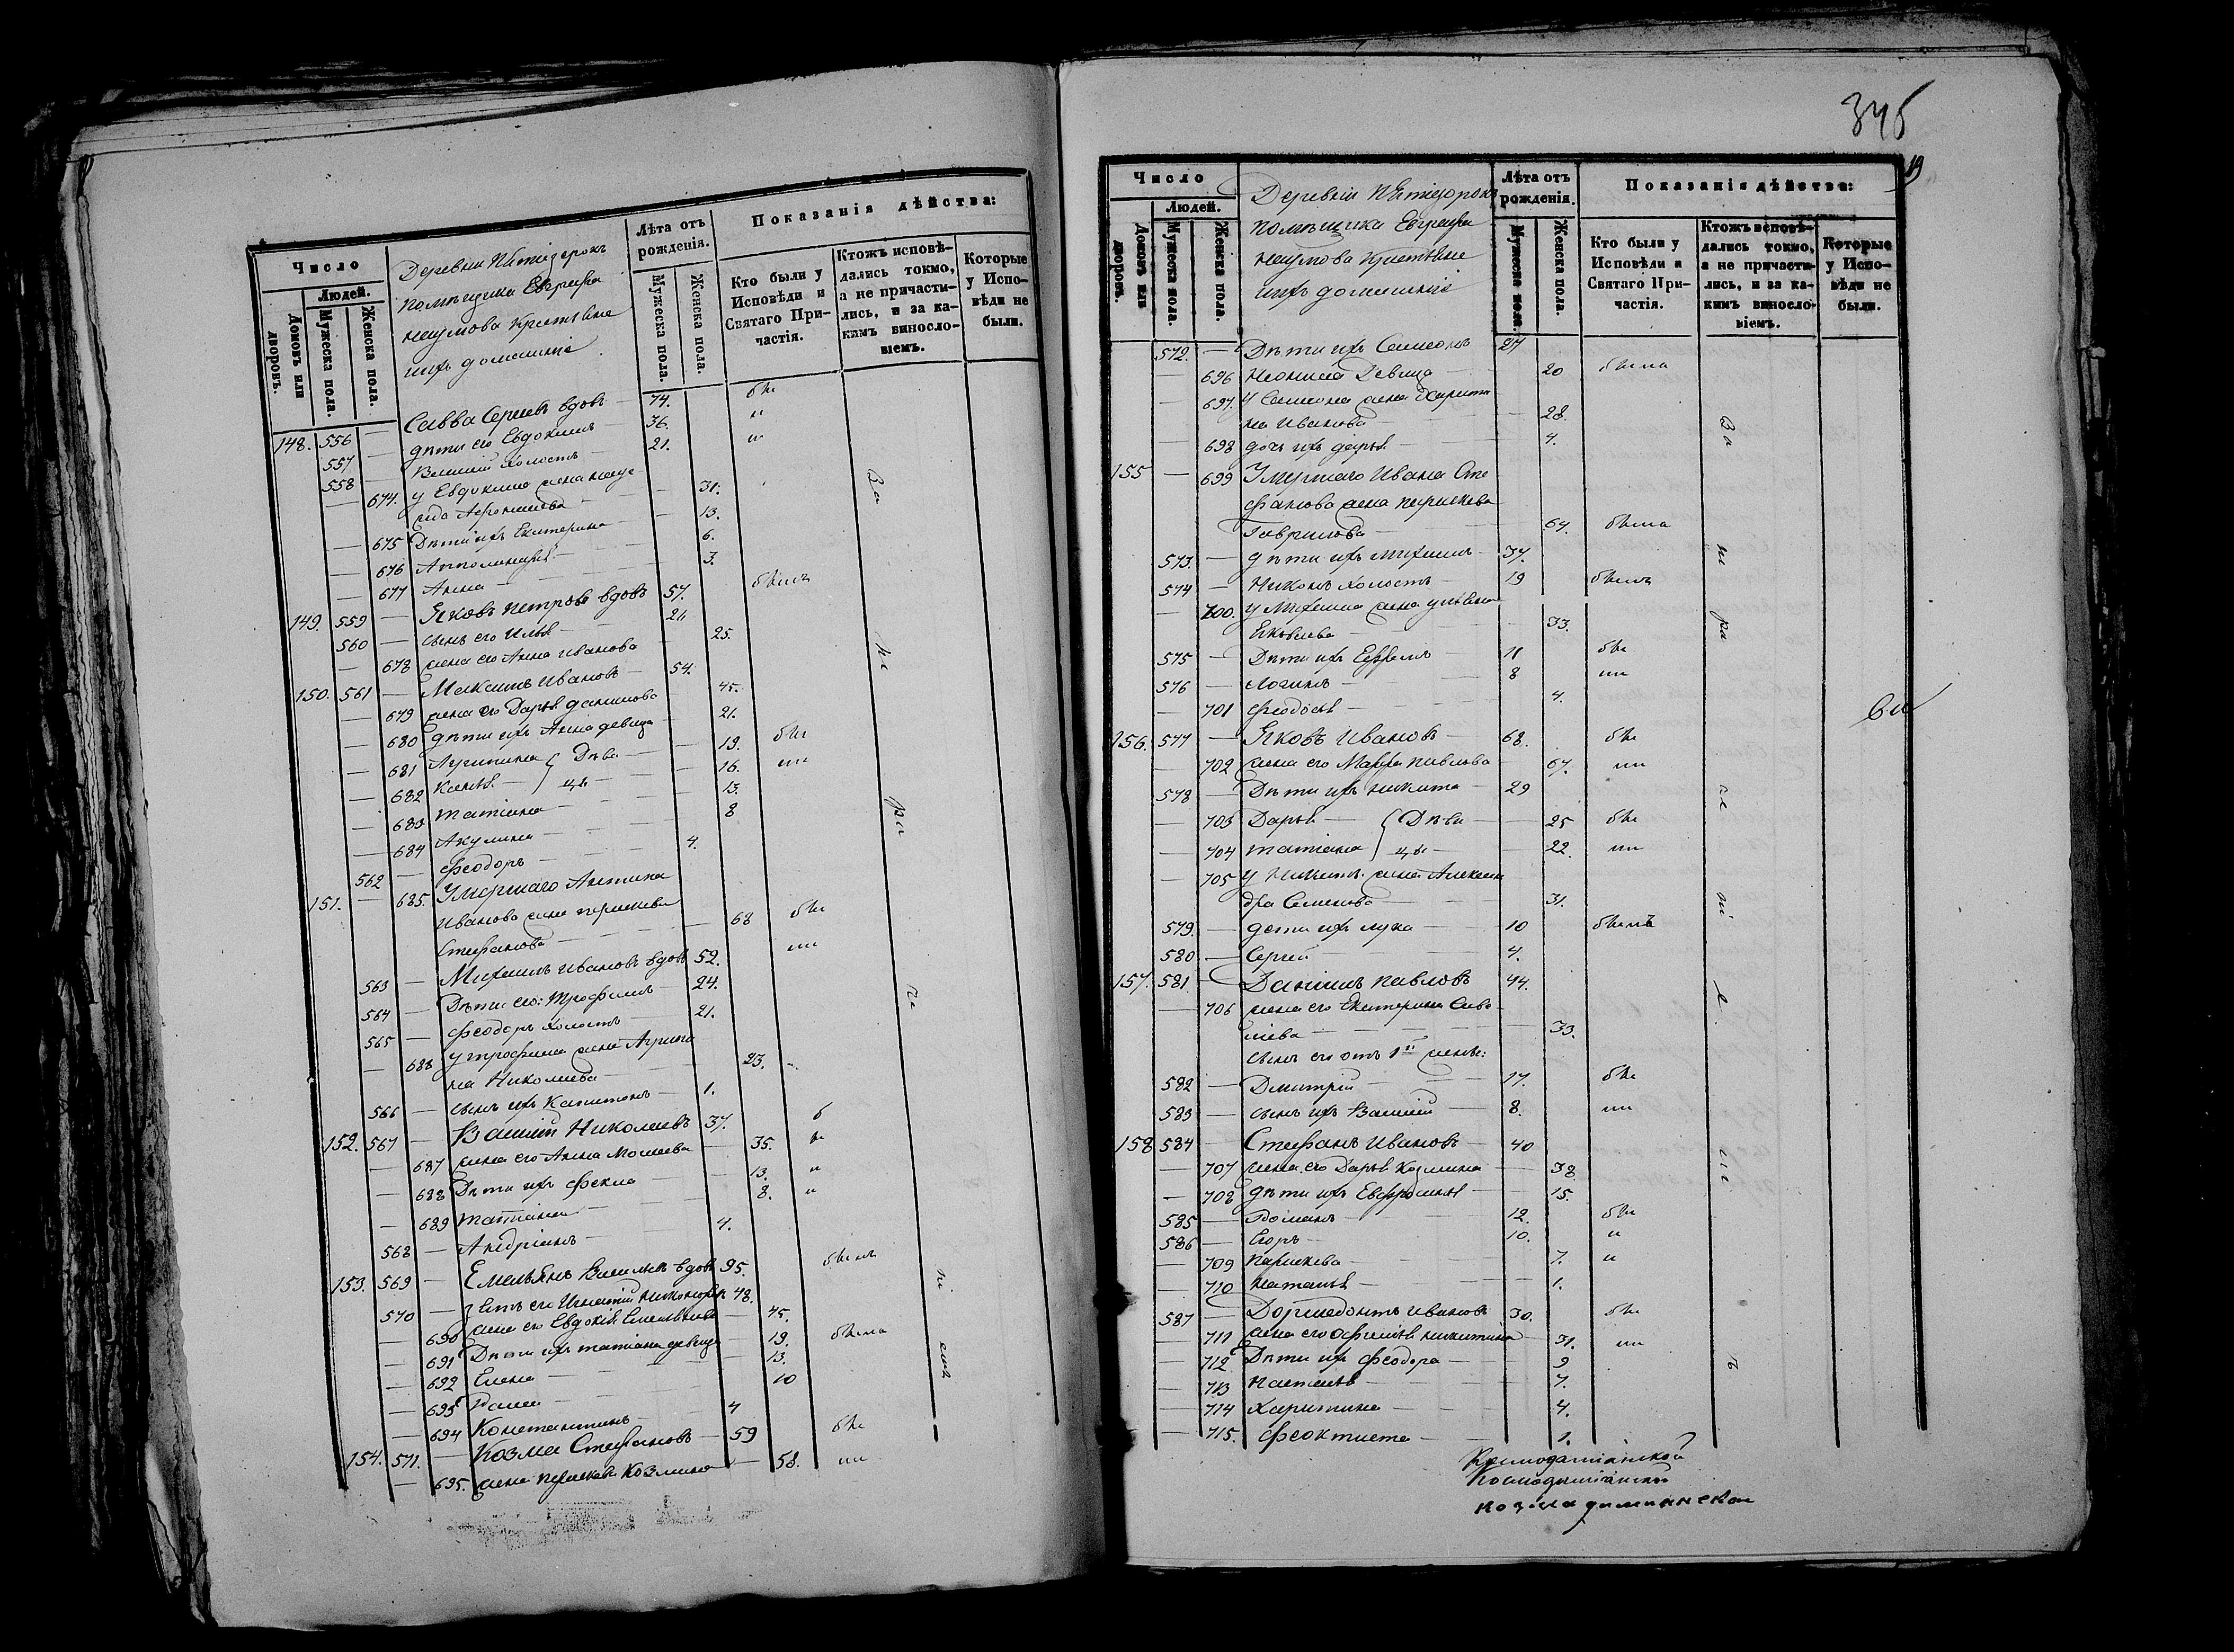 Число
Людей.
Домовъ или дворовъ.
Мужеска пола.
Женска пола.
Деревни Пятидорокъ
помѣщика Евграфа
Наумова крестьяне
ихъ домашніе
Лѣта отъ рожденія.
Мужеска пола.
Женска пола.
Показанія дѣйства:
Кто были у Исповѣди и Святаго Причастія.
Ктожъ исповѣдались токмо, а не причастились, и за какимъ винословіемъ.
Которые у Исповѣди не были.
148. 556 — Савва Сергѣевъ вдовъ 74.
557 — дѣти его Евдокимъ 36.
558 — Василій холостъ 21.
— 674. у Евдокима жена
31.
— 675 Дѣти ихъ Екатерина — 13.
— 676 Апполинарія — 6.
— 677 Анна — 3.
149. 559 — Яковъ Петровъ вдовъ 57. былъ
560 — сынъ его Илья
— 678 жена его Анна Иванова 25.
150. 561 — Максимъ Ивановъ 54.
— 679 жена его Дарья Данилова 45.
— 680 дѣти ихъ Анна девица 21.
— 681 19.
— 682 16.
— 683 Татіана — 13.
— 684 Акулина — 8
562 — Феодоръ — 4.
151. — 685. Умершаго Антипа
Иванова жена Параскева
Стефанова — 68
563 — Михаилъ Ивановъ вдовъ 52.
564 — Дѣти его: Трофимъ 24.
565 — Феодоръ холостъ 21.
— 688 у Трофима жена Агрипи
на Николаева 23.
566 — сынъ ихъ Капитонъ 1.
152. 567 — Василій Николаевъ 37.
— 687 жена его Анна Моисеева 35.
— 688 Дѣти ихъ Фекла 13.
— 689 Татіана 8.
568 — Андріанъ 4.
153. 569 — Емельянъ Васильевъ вдовъ 95. былъ
570 — зять его Игнатій Никоноровъ 48.
— 690 жена его Евдокія Емельянова 45.
— 691 Дѣти ихъ Татіана девица 19. была
— 692 Елена 13.
— 693 10
— 694 Константинъ 4
154. 571. — Козма Стефановъ 59
— 695. жена Параскева Козмина 58.
345
19
Число
Людей.
Домовъ или дворовъ.
Мужеска пола.
Женска пола.
Деревни Пятидорокъ
помѣщика Евграфа
Наумова крестьяне
ихъ домашніе
Лѣта отъ рожденія.
Мужеска пола.
Женска пола.
Показанія дѣйства:
Кто были у Исповѣди и Святаго Причастія.
Ктожъ исповѣдались токмо, а не причастились, и за какимъ винословіемъ.
Которые у Исповѣди не были.
572. — Дѣти ихъ Самсонъ 27
— 696 Неонила Девица 20 была
— 697. У Самсона жена Харити
на Иванова 28.
— 698 дочь ихъ Дарья 4.
155 — 699 Умершаго Ивана Сте
фанова жена Параскева
Гаврилова 64. была
573. — дѣти ихъ Михаилъ 37.
574 — Никонъ холостъ 19 былъ
— 700. у Михаила жена Ульяна
Яковлева 33.
575 — Дѣти ихъ Ефремъ 11
576 — Логинъ 8
— 701 Феодосья 4.
156. 577 — Яковъ Ивановъ 68.
— 702 жена его Марфа Павлова 67.
578 — Дѣти ихъ Никита 29
— 703 Дарья — Дѣви 25
— 704 Татіана цы 22.
— 705 у Никиты жена Алексан
дра Семенова 31.
579. — дети ихъ Лука 10 былъ
580 — Сергей 4.
157. 581 — Даніилъ Павловъ 44.
— 706 жена его Екатерина Саве
лиева 33.
сынъ его отъ 1й жены:
582 — Дмитрій 17.
583 — сынъ ихъ Василій 8.
158 584 — Стефанъ Ивановъ 40
— 707 жена его Дарья Козмина 38.
— 708 дѣти ихъ Евфросинья 15.
585 — Романъ 12.
586 — Егоръ 10.
— 709 Параскева 7.
— 710 Наталья 1.
587 — Доримедонтъ Ивановъ 30.
— 711 жена его Афимья Никитина 31.
— 712 Дѣти ихъ Феодора 9
— 713 Наталья 7.
— 714 Харитина 4.
— 715. Феоктиста 1.
Космодаміанской
Космодаміанской
Козма дамианской